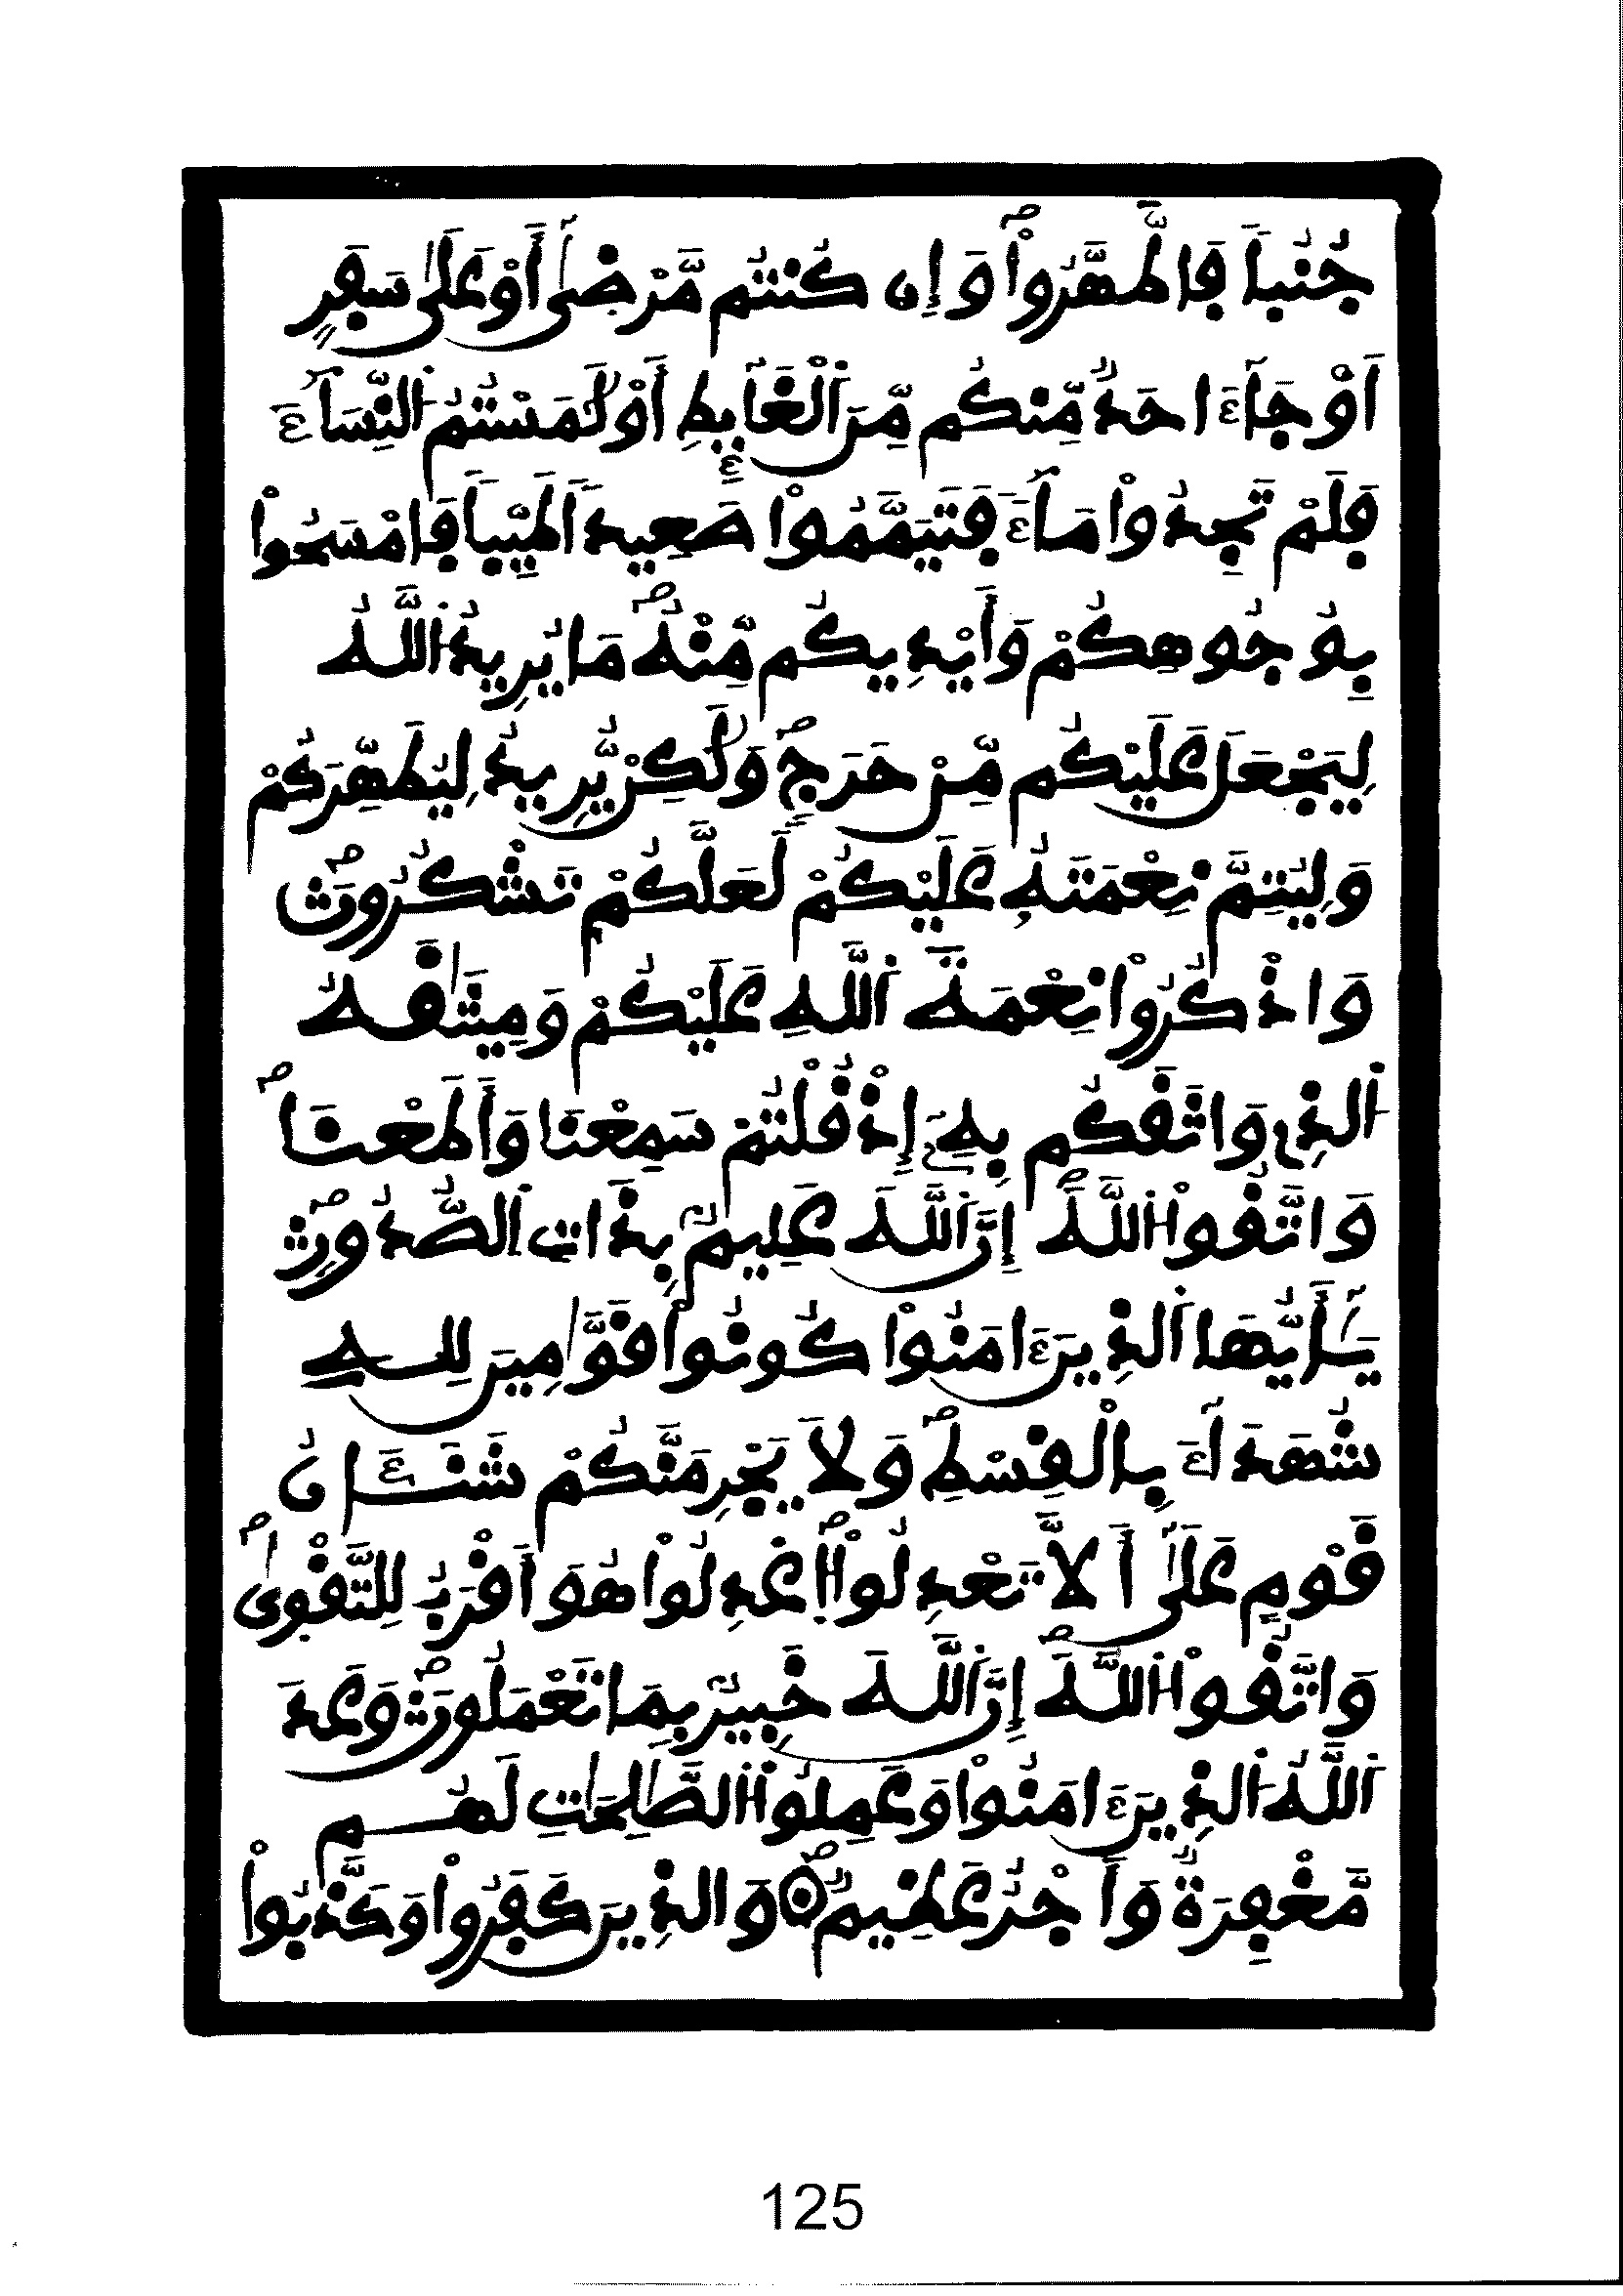 جُنُباٗ فَاطَّهَّرُواْۖ وَإِن كُنتُم مَّرْضَىٰٓ أَوْ عَلَىٰ سَفَرٍ
اَوْ جَآءَ احَدٞ مِّنكُم مِّنَ اَ۬لْغَآئِطِ أَوْ لَٰمَسْتُمُ اُ۬لنِّسَآءَ
فَلَمْ تَجِدُواْ مَآءٗ فَتَيَمَّمُواْ صَعِيداٗ طَيِّباٗ فَامْسَحُواْ
بِوُجُوهِكُمْ وَأَيْدِيكُم مِّنْهُۖ مَا يُرِيدُ اُ۬للَّهُ
لِيَجْعَلَ عَلَيْكُم مِّنْ حَرَجٖۖ وَلَٰكِنْ يُّرِيدُ لِيُطَهِّرَكُمْ
وَلِيُتِمَّ نِعْمَتَهُۥ عَلَيْكُمْ لَعَلَّكُمْ تَشْكُرُونَۖ
وَاذْكُرُواْ نِعْمَةَ اَ۬للَّهِ عَلَيْكُمْ وَمِيثَٰقَهُ
اُ۬لذِے وَاثَقَكُم بِهِۦٓ إِذْ قُلْتُمْ سَمِعْنَا وَأَطَعْنَاۖ
وَاتَّقُواْ اُ۬للَّهَۖ إِنَّ اَ۬للَّهَ عَلِيمُۢ بِذَاتِ اِ۬لصُّدُورِۖ
يَٰٓأَيُّهَا اَ۬لذِينَ ءَامَنُواْ كُونُواْ قَوَّٰمِينَ لِلهِ
شُهَدَآءَ بِالْقِسْطِۖ وَلَا يَجْرِمَنَّكُمْ شَنَـَٔانُ
قَوْمٍ عَلَىٰٓ أَلَّا تَعْدِلُواْۖ اُ۪عْدِلُواْ هُوَ أَقْرَبُ لِلتَّقْوَىٰۖ
وَاتَّقُواْ اُ۬للَّهَۖ إِنَّ اَ۬للَّهَ خَبِيرُۢ بِمَا تَعْمَلُونَۖ وَعَدَ
اَ۬للَّهُ اُ۬لذِينَ ءَامَنُواْ وَعَمِلُواْ اُ۬لصَّٰلِحَٰتِ لَهُم
مَّغْفِرَةٞ وَأَجْرٌ عَظِيمٞۖ وَالذِينَ كَفَرُواْ وَكَذَّبُواْ
125